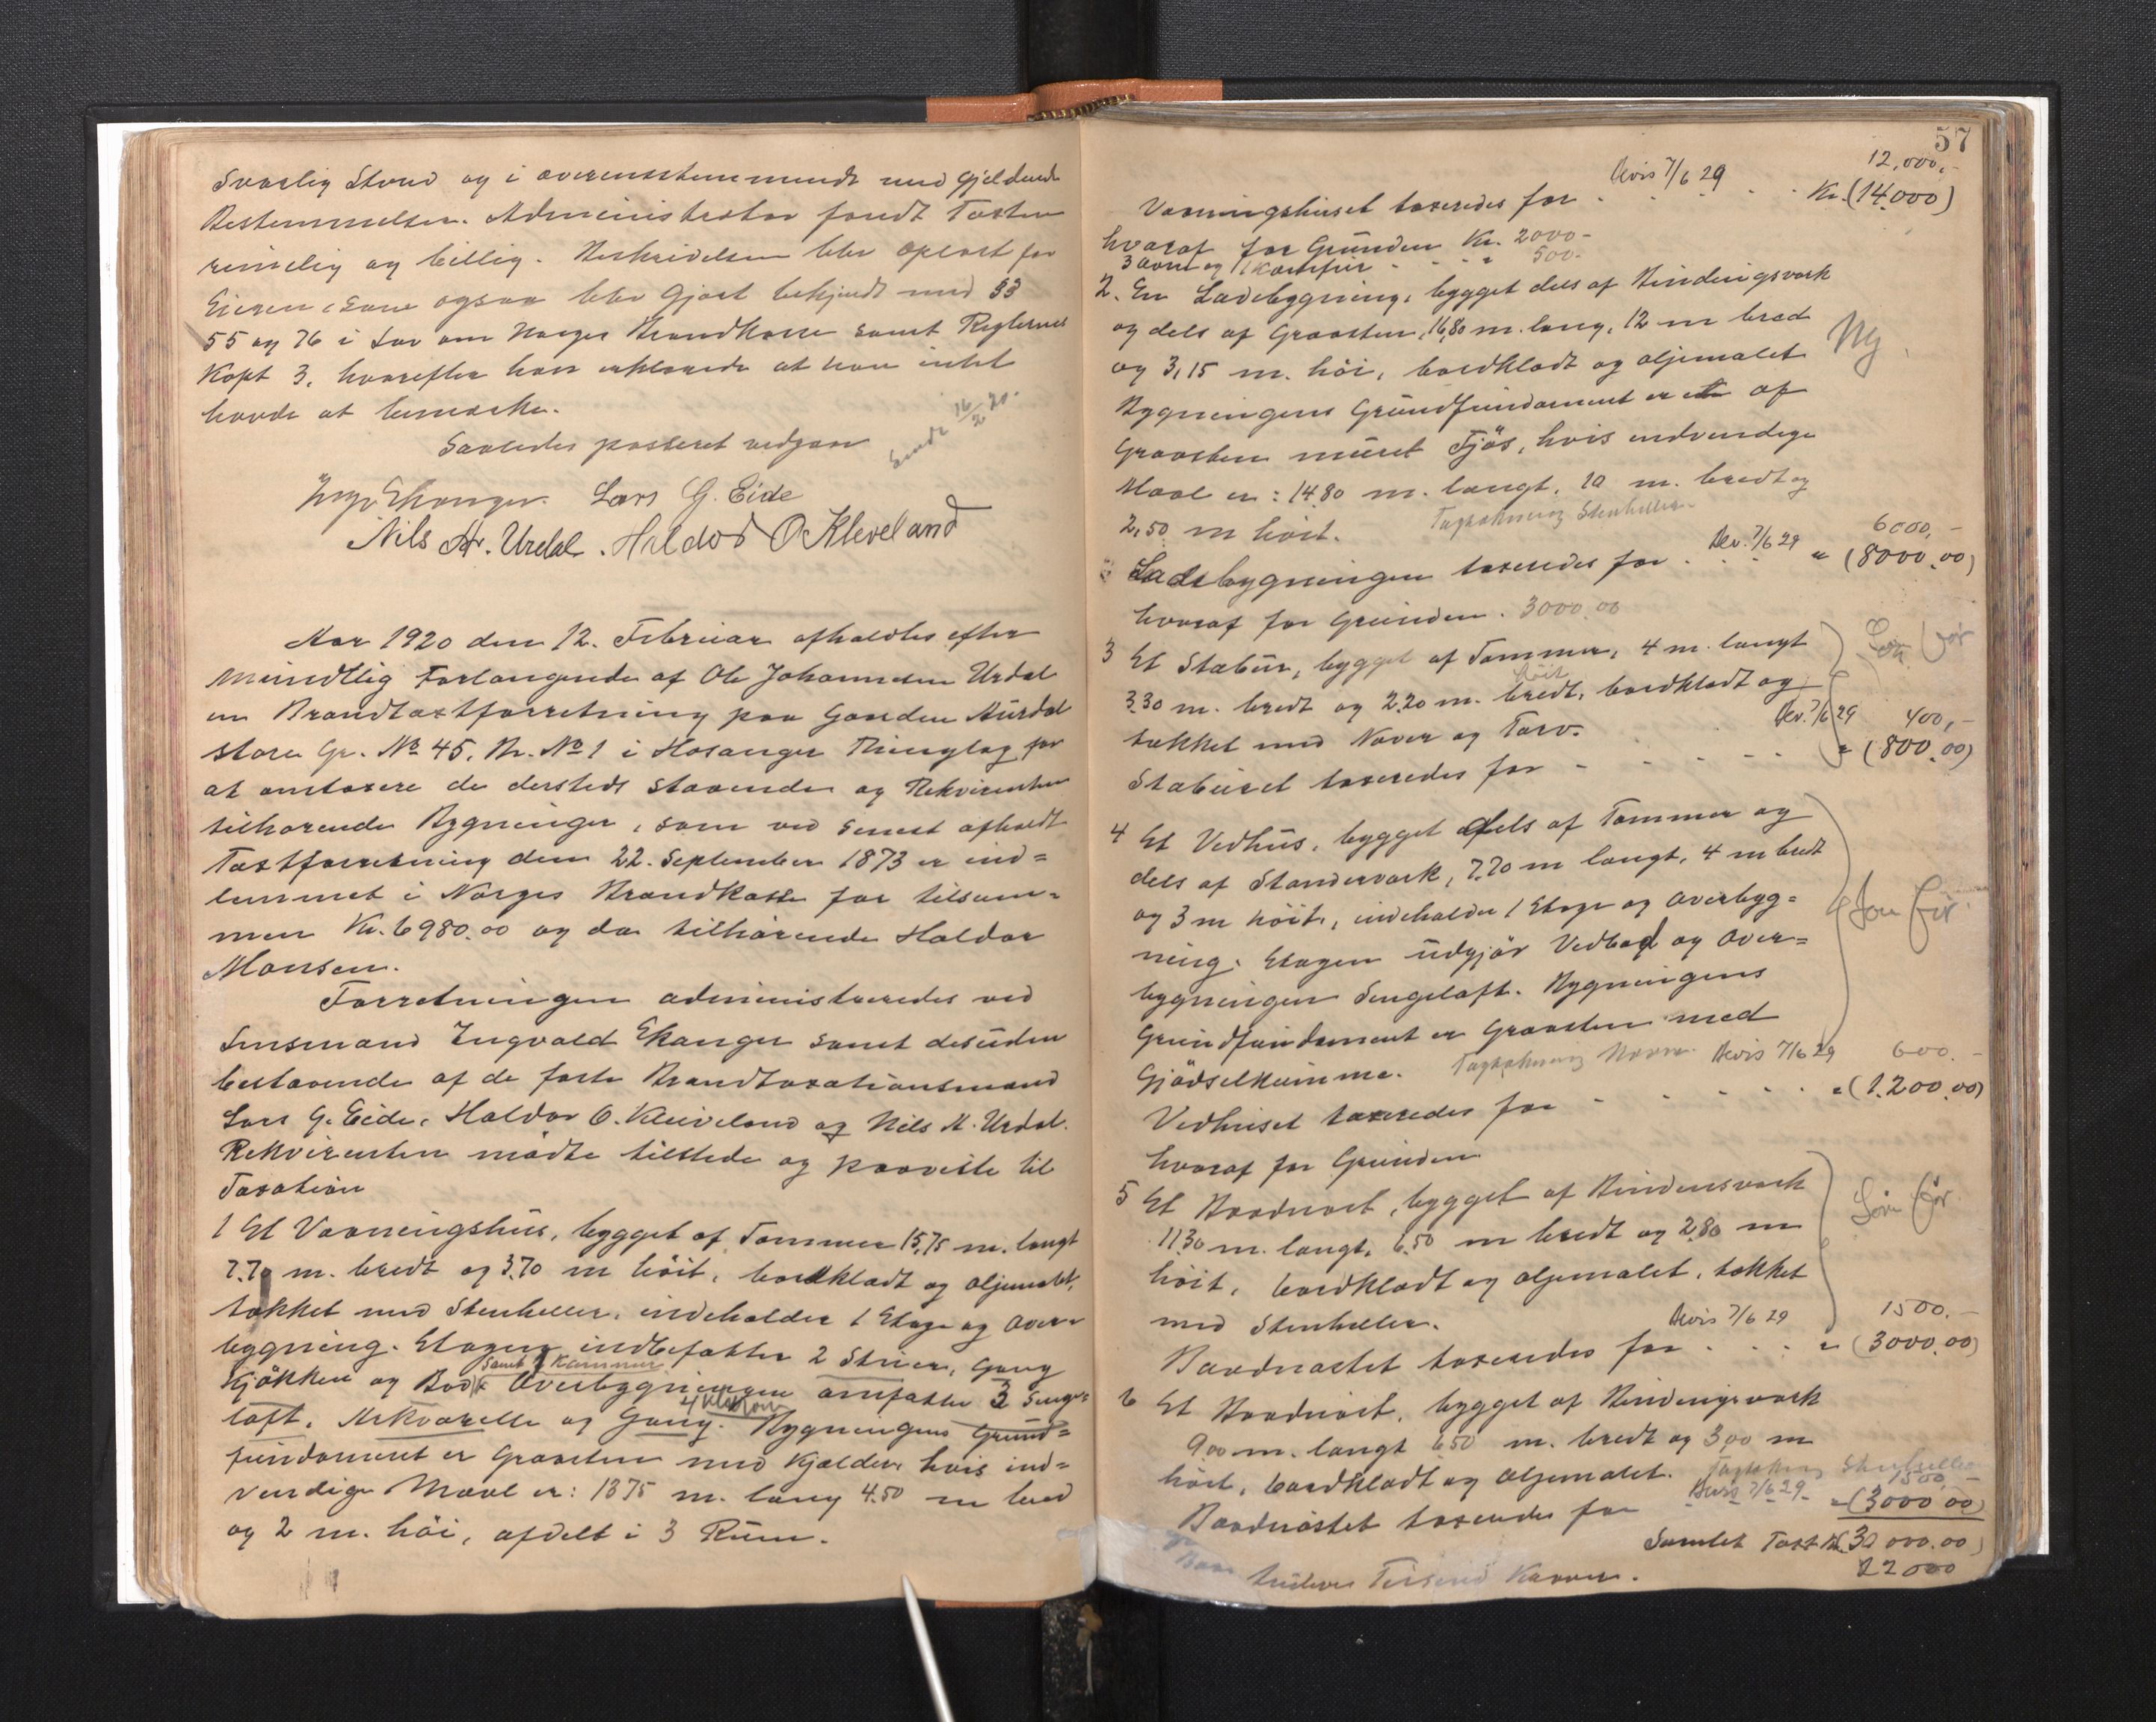 svarlig Stand og i overensstemmende med Gjeldende
Bestemmelser. Administrator fandt Taxten
rimelig og billig. Beskrivelsen blev oplæst for
Eieren, som ogsaa blev gjort bekjendt med §§
55 og 76 i Lov om Norges Brandkasse samt Reglernes
Kapt 3, hvorefter han erklærede at han intet
havde at bemærke.
Saaledes passeret vedgaar
Sendt 16/2 20.
Ingv. Ekanger. Lars G. Eide
Nils A. Urdal. Haldor O Kleveland
Aar 1920 den 12. Februar afholdtes efter
mundtlig Forlangende af Ole Johannesen Urdal
en Brandtaxtforretning paa Gaarden Aurdal
store Gr. No 45, Br. No 1 i Hosanger Thinglag for
at omtaxere de dersteds staaende og Rekvirenten
tilhørende Bygninger, som ved senest afholdt
Taxtforretning den 22. September 1873 er ind=
lemmet i Norges Brandkasse for tilsam=
men Kr. 6980.00 og da tilhørende Haldor
Monsen.
Forretningen administreredes ved
Lensmand Ingvald Ekanger samt desuden
bestaaende af de faste Brandtaxationsmænd
Lars G. Eide, Haldor O. Kleiveland og Nils A. Urdal.
Rekvirenten mødte tilstede og paaviste til
Taxation
1 Et Vaaningshus, bygget af Tømmer 15,75 m. langt
7.70 m. bredt og 3.70 m høit, bordklædt og oljemalet,
tækket med Stenheller, indeholder 1 Etage og Over=
bygning. Etagen indbefatter 2 Stuer, Gang
samt 1 Kammer
Kjøkken og Bod. Overbygningen omfatter 3 Senge=
loft, Arkværelse og Gang. Bygningens Grund=
fundament er Graasten med Kjælder, hvis ind=
vendige Maal er: 1375 m. lang 4.50 m bred
og 2 m. høi, afdelt i 3 Rum.
57
Revis 7/6 29 12,000,-
Vaaningshuset taxeredes for . . . . Kr. (14.000)
hvoraf for Grunden Kr. 2000-
3 ovne og 1 Komfur . . . " 500-
2. En Ladebygning, bygget dels af Bindingsværk
og dels af Graasten, 16,80 m. lang, 12 m bred
og 3,15 m. høi, bordklædt og oljemalet
Ny
Bygningens Grundfundament er et af
Graasten muret Fjøs, hvis indvendige
Maal er: 14.80 m. langt, 10 m. bredt og
2,50 m høit. Tagtækning Stenheller
Rev. 7/6 29 6000,-
Ladebygningen taxeredes for . . . " (8000.00)
hvoraf for Grunden. 3000.00
3 Et Stabur, bygget af Tømmer, 4 m. langt
høit
3.30 m. bredt og 2.20 m. bredt, bordklædt og
tækket med Næver og Torv.
Rev. 7/6 29 400,-
Staburet taxeredes for - - - - - " (800.00)
4 Et Vedhus, bygget dels af Tømmer og
dels af Standerværk, 7.70 m langt, 4 m bredt
og 3 m høit, indeholder 1 Etage og Overbyg=
ning. Etagen udgjør Vedbod og Over=
bygningen Sengeloft. Bygningens
Grundfundament er Graasten med
Gjødselkumme. Tagtækning Revis 7/6 29 600.-
Vedhuset taxeredes for - - - - - " (1.200.00)
hvoraf for Grunden
5 Et Baadnøst, bygget af Bindensværk
11.30 m. langt, 6.50 m bredt og 2.80 m
høit, bordklædt og oljemalet, tækket
med Stenheller.
Revis 7/6 29 1500.-
Baadnøstet taxeredes for . . . " (3000.00)
6 Et Baadnøst, bygget af Bindingsværk
9.00 m. langt 6.50 m. bredt og 3.00 m
høit, bordklædt og oljemalet. Tagtækning Stenheller
Revis 7/6 29 1500.-
Baadnøstet taxeredes for " (3000.00)
Samlet Taxt Kr. 30 000.00)
22 000
Tusinde Kroner.